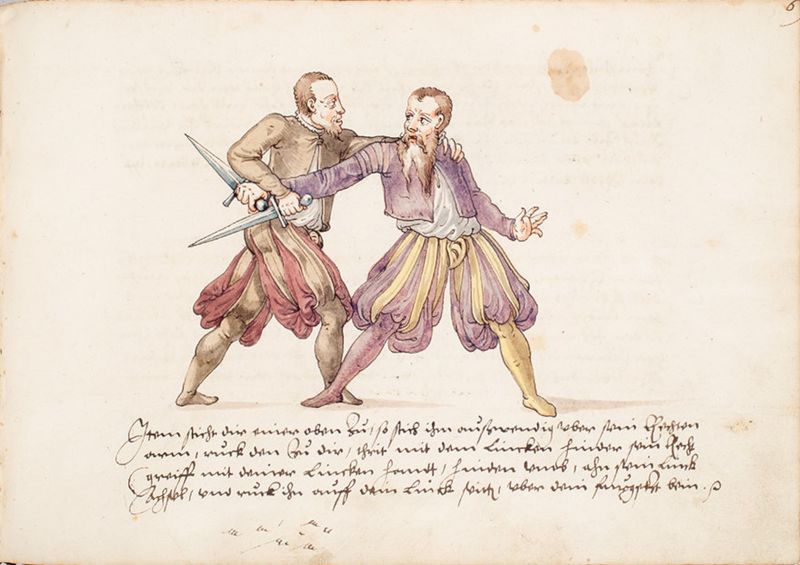 6
Item sticht dir einer oben Zu, so stich ihm ausswendig vber sein Rechten
arm, ruck den Zu dir, thrit mit dem Lincken hinder sein Rech
greiff mit deiner Lincken handt, hinden vmb, ahn sein Linck
Achsel, vnd ruck ihn auff dein Linck seitt, vber dein furgesetzt bein.